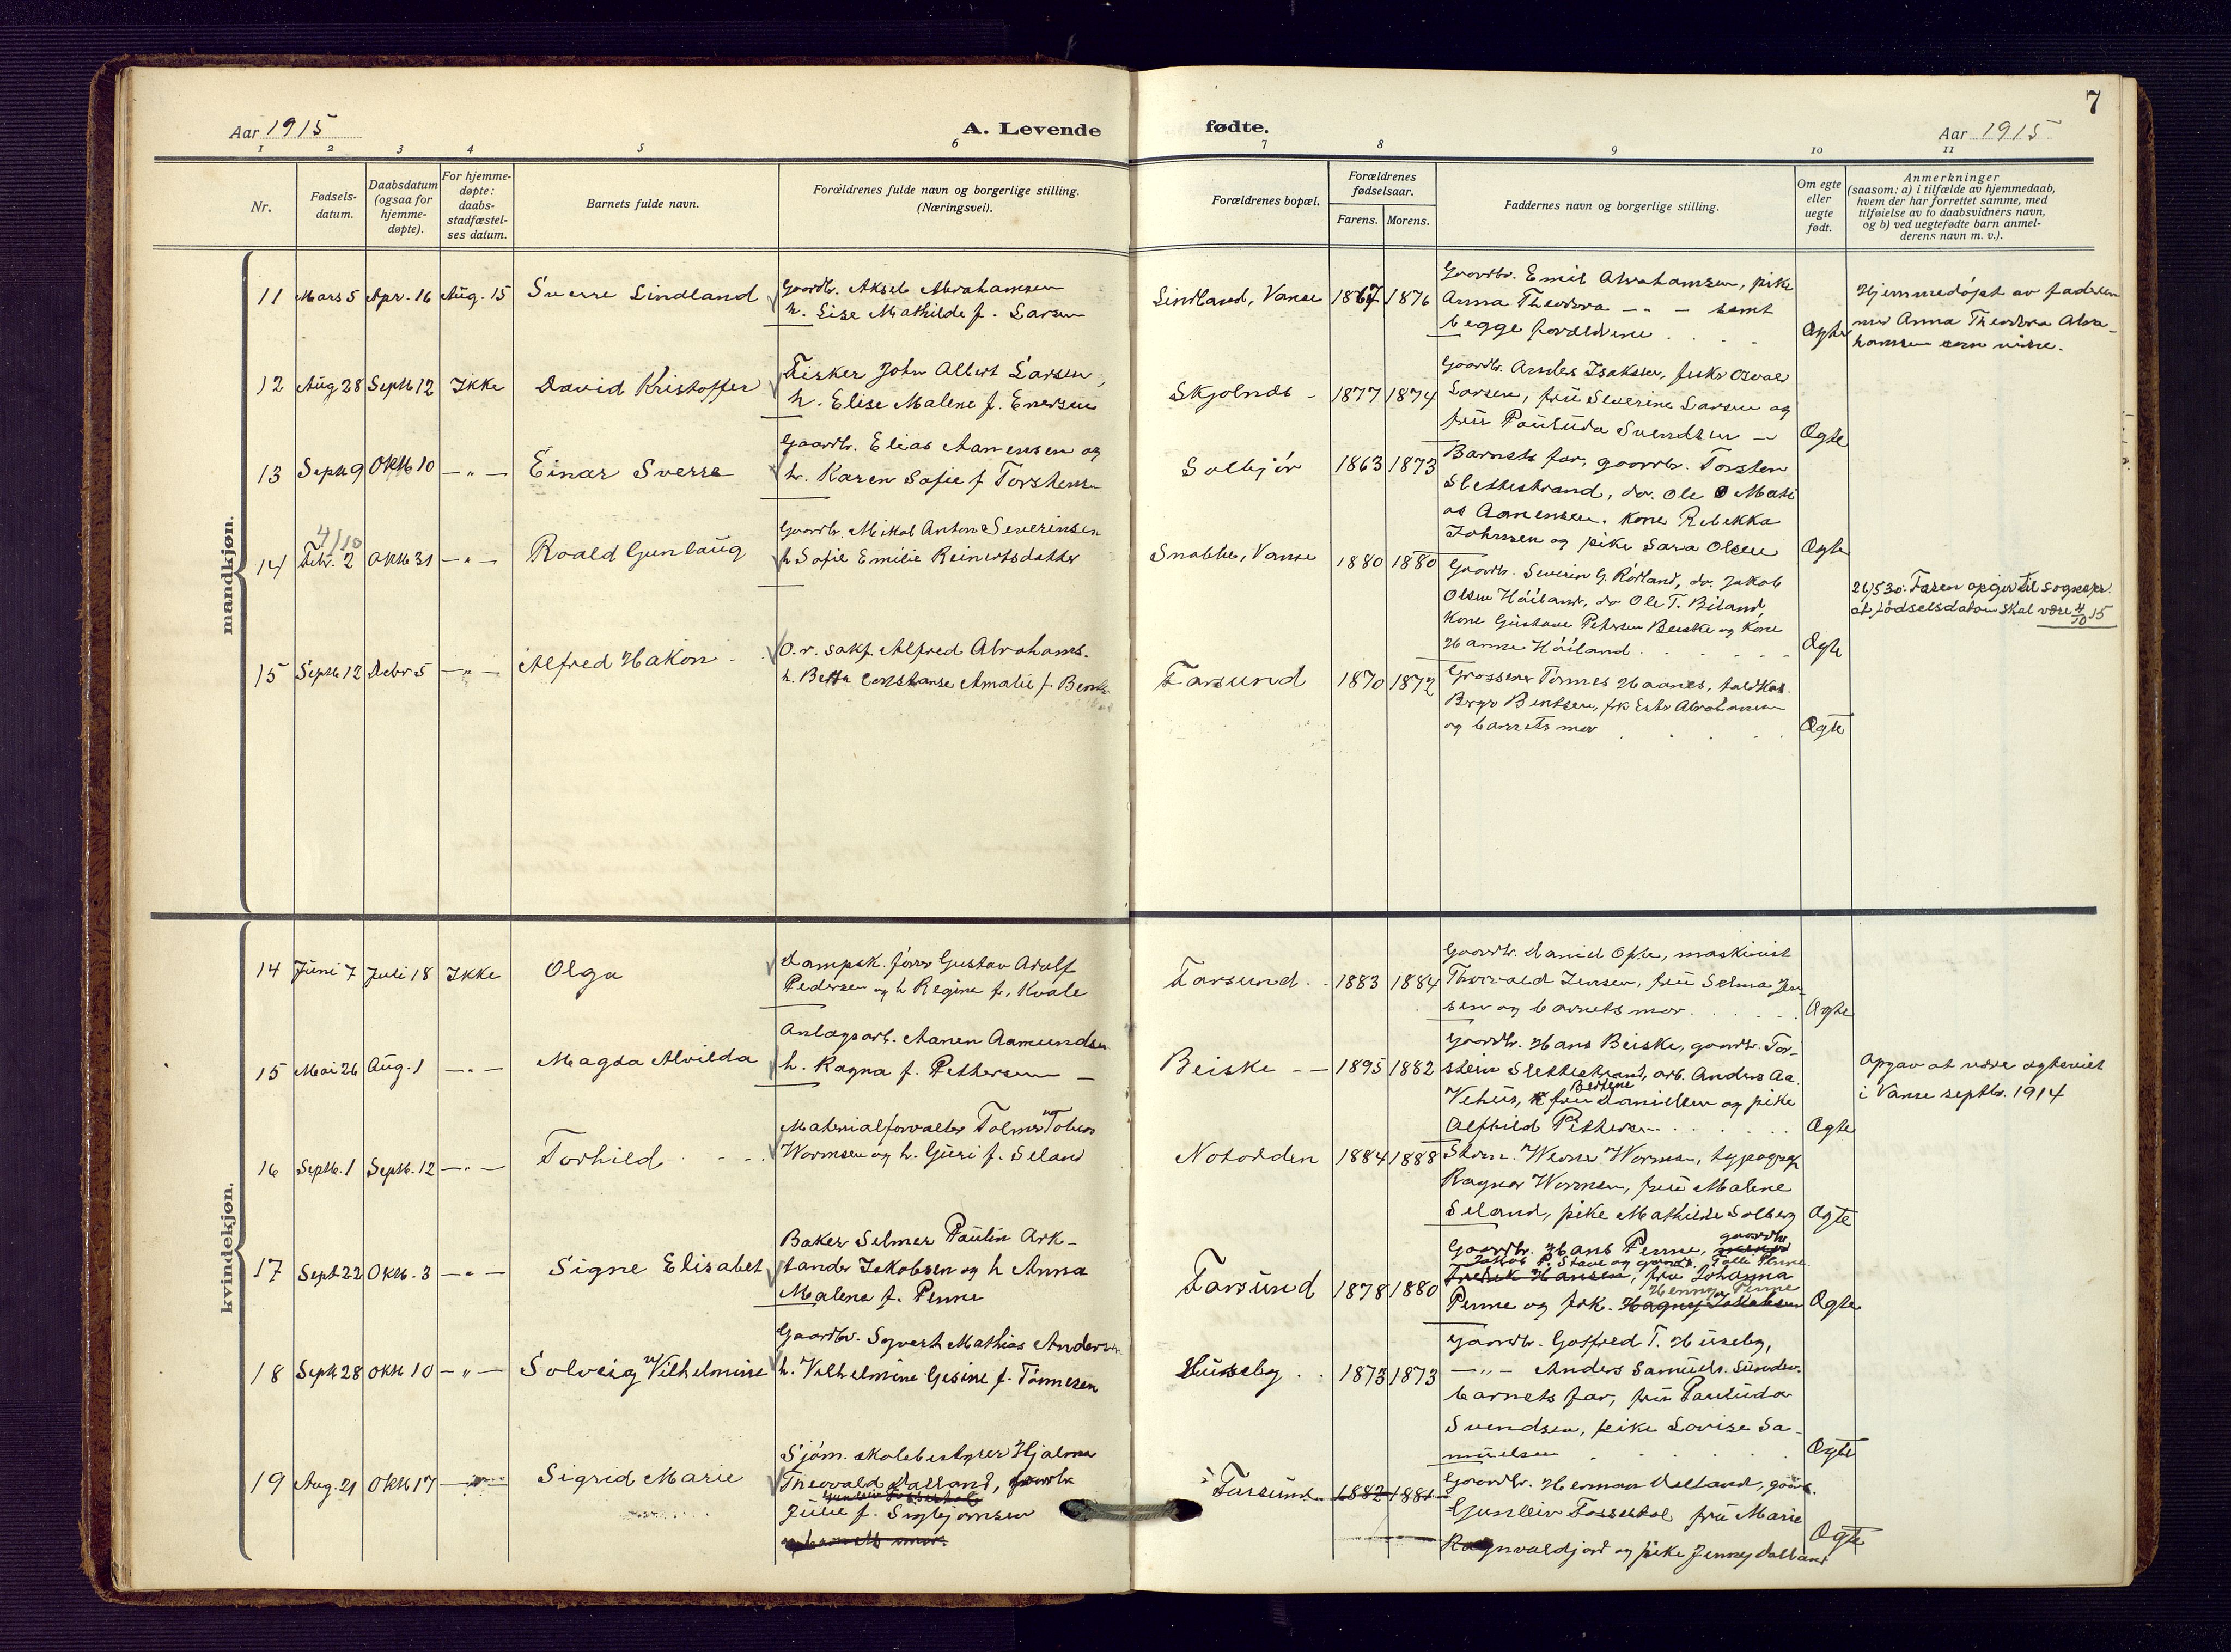 7
Aar 1915
A. Levende
fødte.
Aar 1915
1 2 3 4 5 6 7 8 9 10 11
Nr.
Fødsels-
datum.
Daabsdatum
(ogsaa for
hjemme-
døpte).
For hjemme-
døpte:
daabs-
stadfæstel-
ses datum.
Barnets fulde navn.
Forældrenes fulde navn og borgerlige stilling.
(Næringsvei).
Forældrenes bopæl.
Forældrenes
fødselsaar.
Farens. Morens.
Faddernes navn og borgerlige stilling.
Om egte
eller
uegte
født.
Anmerkninger
(saasom: a) i tilfælde av hjemmedaab,
hvem der har forrettet samme, med
tilføielse av to daabsvidners navn,
og b) ved uegtefødte barn anmel-
derens navn m. v.).
mandkjøn.
11 Mars 5 Apr. 16 Aug. 15 Sverre Lindland
Gaardbr. Aksel Abrahamsen
h. Lise Mathilde f. Larsen
Lindland, Vanse 1867 1876
Gaardbr. Emil Abrahamsen, pike
Anna Theodora -"- samt
begge forældrene
Ægte
Hjemmedøpt av faderen
med Anna Theodora Abra-
hamsen som vidne.
12 Aug 28 Septb 12 Ikke David Kristoffer
Fisker John Albert Larsen,
h. Elise Malene f. Enersen
Skjolnes - 1877 1874
Gaardbr. Anders Isaksen, fisker Osvald
Larsen, frü Severine Larsen og
frü Paulüda Svendsen
Ægte
13 Septb 9 Oktb 10 -"- Einar Sverre
Gaardbr. Elias Aanensen og
h. Karen Sofie f Torstens
Solbjör 1863 1873
Barnets far, gaardbr. Torsten
Slettestrand, do. Ole Mati
as Aanensen. kone Rebekka
Johnsen og pike Sara Olsen
Ægte
4/10
14 Febr. 2 Oktb 31 -"- Roald Gunlaüg
Gaardbr. Mikal Anton Severinsen
h Sofie Emilie Reinertsdatter
Snabbe, Vanse 1880 1880
Gaardbr. Severin G. Rødland, do. Jakob
Olsen Høiland, do Ole T. Biland
Kone Güstava Petersen Beiske og Kone
Hanna Høiland
Ægte
26/5 30. Faren opgir til sognepr.
at fødselsdatoen skal være 4/10 15
15 Septb 12 Debr 5 -"- Alfred Hakon
O.r. sakf. Alfred Abrahams.
h. Betta Constanse Amalie f. Bents
Farsund 1870 1872
Grosserer Tönnes Haanes, toldkas.
Bergr Bentsen, frk Ester Abrahamsen
og barnets mor
Ægte
kvindekjøn.
14 Jüni 7 Juli 18 Ikke Olga
Dampsk. fører Gustav Adolf
Pedersen og h Regine f. Kvale
Farsund 1883 1884
Gaardbr. Daniel Ofte, maskinist
Thorvald Jensen, frü Selma Jen-
sen og barnets mor
Ægte
15 Mai 26 Aug. 1 -"- Magda Alvilda
Anlægsarb. Aanen Aamundsen
h. Ragna f. Pettersen
Beiske 1895 1882
Gaardbr. Hans Beiske, gaardbr. Tor-
stein Slettestrand, arb. Anders Aa.
Vehüs, frü Bertine Danielsen og pike
Alfhild Pettersen
Ægte
Opgav at være ægteviet
i Vanse septbr. 1914
16 Septb. 1 Septb. 12 -"- Torhild
Materialforvalter Tolmer Tobias
Wormsen og h. Güri f. Seland
Notodden 1884 1888
Werner Wormsen, typograf
Ragnar Wormsen, frü Malene
Seland, pike Mathilde Solberg
Ægte
17 Sept 22 Oktb. 3 -"- Signe Elisabet
Baker Selmer Paülin Ark-
tander Jakobsen og h Anna
Malena f. Penne
Farsünd 1878 1880
Gaardbr. Hans Penne, gaardbr
Jakob P. Stave og gaardbr. Tolli Penne
Fredrik Hansen, frü Johanna
Henny Penne
Penne og frk. Hagny Jakobsen
Ægte
18 Septb 28 Oktb 10 -"- Solveig Vilhelmine
Gaardbr. Syvert Mathias Andersen
h. Vilhelmine Gesine f. Tönnesen
Hüseby 1873 1873
Gaardbr. Gotfred T. Hüseby,
-"- Anders Samüels. Sünde.
barnets far, frü Paulüda
Svendsen, pike Lovise Sa-
müelsen
Ægte
19 Aug. 21 Oktb 17 Sigrid Marie
Sjøm. skolebestyrer Hjalmar
Theovald Dalland, gaardbr
Gunleiv Fossestøl
Jülie f. Sigbjørnsen
og barnets mor.
Farsund 1882 1881
Gaardbr. Herman Dalland, gaardb.
Gunleiv Fossestøl frü Marie
Ragnvaldjord og pike Jenny Dalland
Ægte